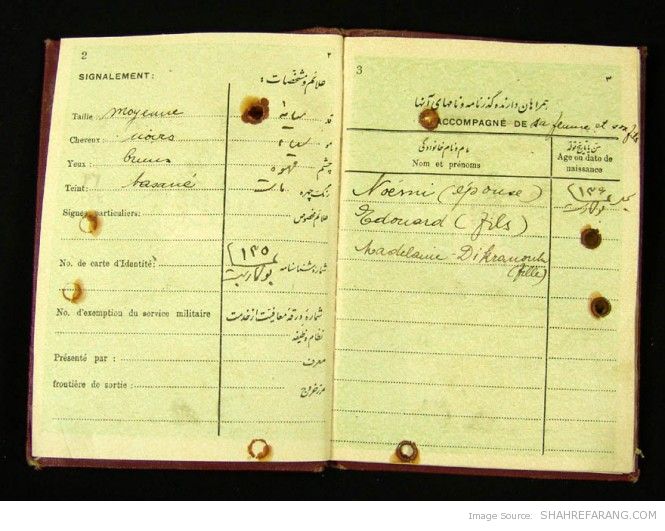 2
۲
SIGNALEMENT:
علائم و مشخصات:
Taille moyenne
قد
Cheveux noirs
مو
Yeux : bruns
چشم
Teint: basané
رنگ چهره
Signes particuliers:
علائم مخصوص
No. de carte d'Identité:
شماره شناسنامه
No. d'exemption du service militaire
شماره ورقه معافیت از خدمت
نظام وظیفه
Présenté par :
معرف
frontière de sortie :
مرز خروج
3
۳
همراهان دارنده گذرنامه و نامهای آنها
ACCOMPAGNÉ DE sa femme et son fils
نام و نام خانوادگی
Nom et prénoms
Age ou date de
naissance
Noémi (épouse)
Edouard (fils)
Madelaine Dikranouh
(fille)
Image Source: SHAHREFARANG.COM